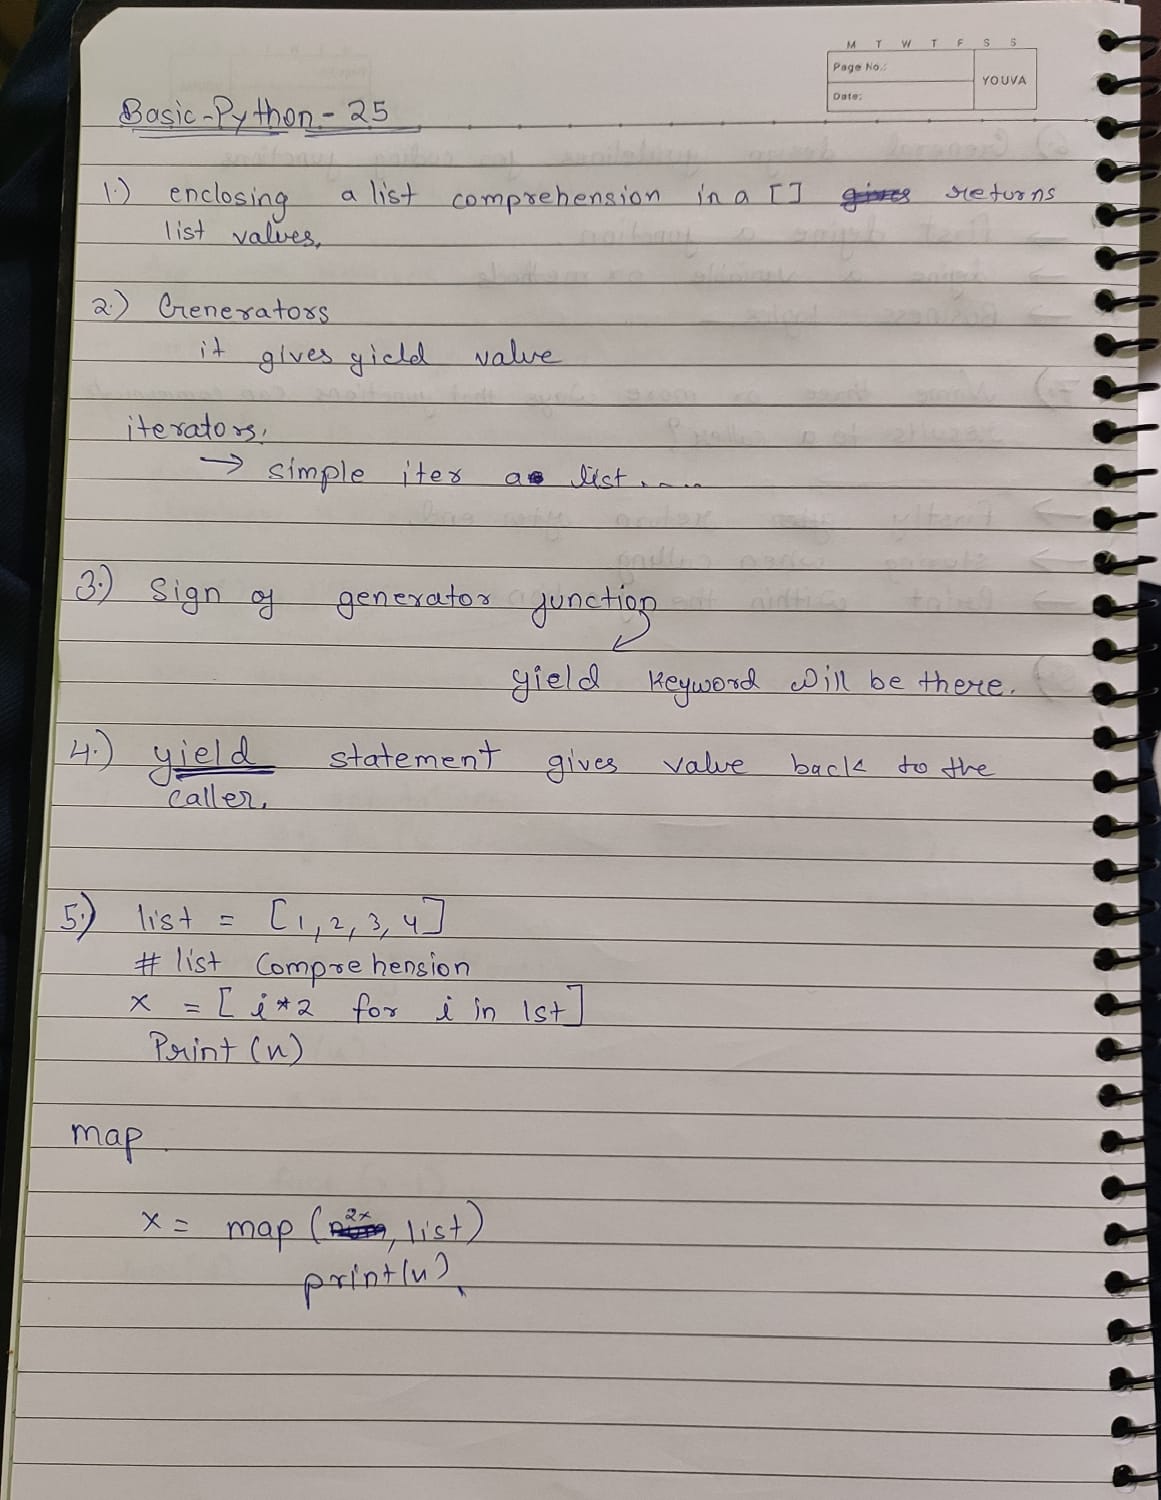 M T W T F S S
Page No.:
YOUVA
Date:
Basic-Python-25
1.) enclosing a list comprehension in a [] gives returns
list values,
2.) Generators
it gives yield value
iterators.
→ simple iter as list.....
3.) Sign of generator function
yield keyword will be there.
4.) yield statement gives value back to the
caller.
5.) list = [1, 2, 3, 4]
# list comprehension
x = [i*2 for i in lst]
Print (x)
map
x = map (2x, list)
print(x)